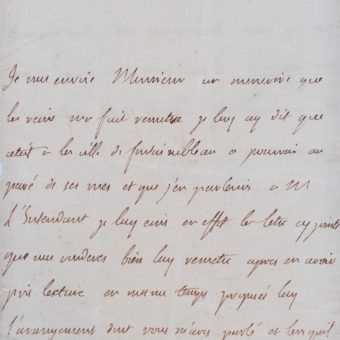 Je vous envoie Monsieur un memoire que
les voiris m'a fait remettre je luy ay dit que
cetoit a la ville de fontainebleau a pourvoir au
pavé de ses rues et que j'en parlerois a M
L'Intendant je luy ecris en effet la letre cy jointe
que vous voudrez bien luy remettre apres en avoir
pris lecture en meme temps
l'arrangement dont vous m'avez parlé et lorsquil